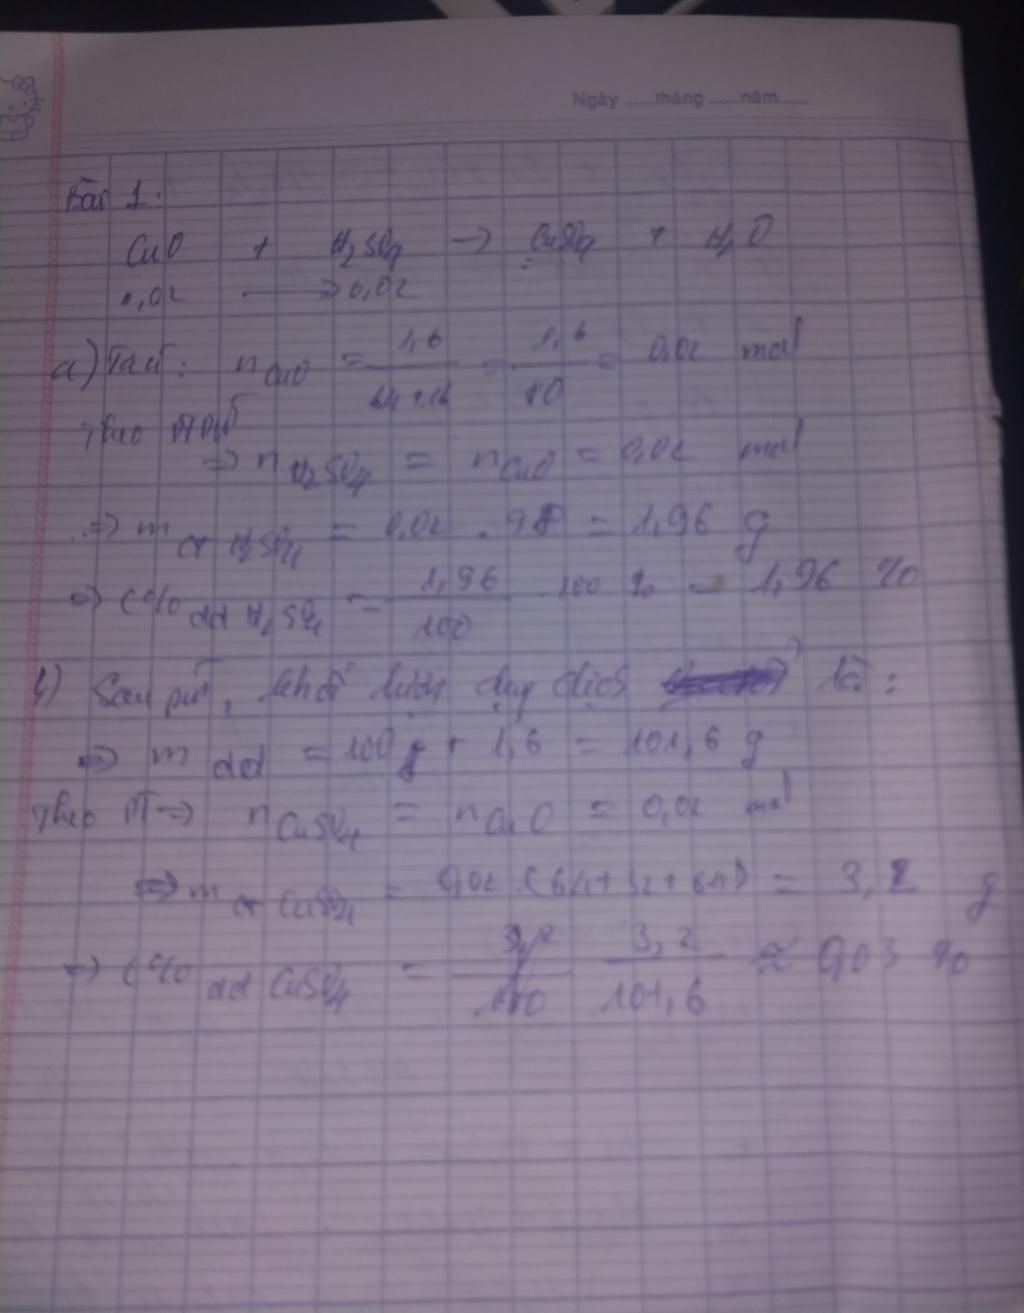 Ngày ......tháng ......năm......
Bài 1:
CuO + H₂SO₄ → CuSO₄ + H₂O
0,02 → 0,02
a) Ta có: n CuO = 1,6 / 64+16 = 1,6 / 80 = 0,02 mol
Theo PTPƯ
=> n H₂SO₄ = n CuO = 0,02 mol
=> m ct H₂SO₄ = 0,02 . 98 = 1,96 g
=> C% dd H₂SO₄ = 1,96 / 100 . 100 % = 1,96 %
b) Sau pứ, khối lượng dung dịch là:
=> m dd = 100g + 1,6 = 101,6 g
Theo PT => n CuSO₄ = n CuO = 0,02 mol
=> m ct CuSO₄ = 0,02 . (64 + 32 + 64) = 3,2 g
=> C% dd CuSO₄ = 3,2 / 101,6 ≈ 0,03 %